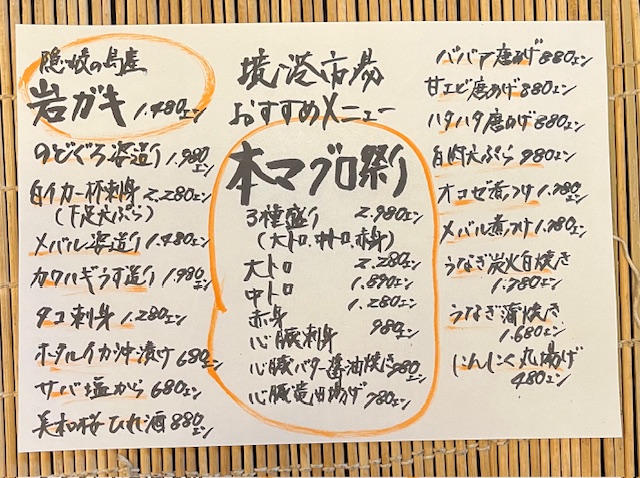 隠岐の島産
岩ガキ 1.480エン
のどぐろ姿造り 1.980エン
白イカ一杯刺身 2.280エン
(下足天ぷら)
メバル姿造り 1.480エン
カワハギうす造り 1.980エン
タコ刺身 1.280エン
ホタルイカ沖漬け 680エン
サバ塩から 680エン
美和桜ひれ酒 880エン
境港市場
おすすめメニュー
本マグロ祭り
3種盛り 2.980エン
(大トロ.中トロ.赤身)
大トロ 2.280エン
中トロ 1.890エン
赤身 1.280エン
心臓刺身 980エン
心臓バター醤油焼き 980エン
心臓竜田揚げ 780エン
ババア唐あげ 880エン
甘エビ唐あげ 880エン
ハタハタ唐あげ 880エン
白肝天ぷら 980エン
オコゼ煮つけ 1.780エン
メバル煮つけ 1.780エン
うなぎ炭火白焼き
1.780エン
うなぎ蒲焼き
1.680エン
にんにく丸揚げ
480エン